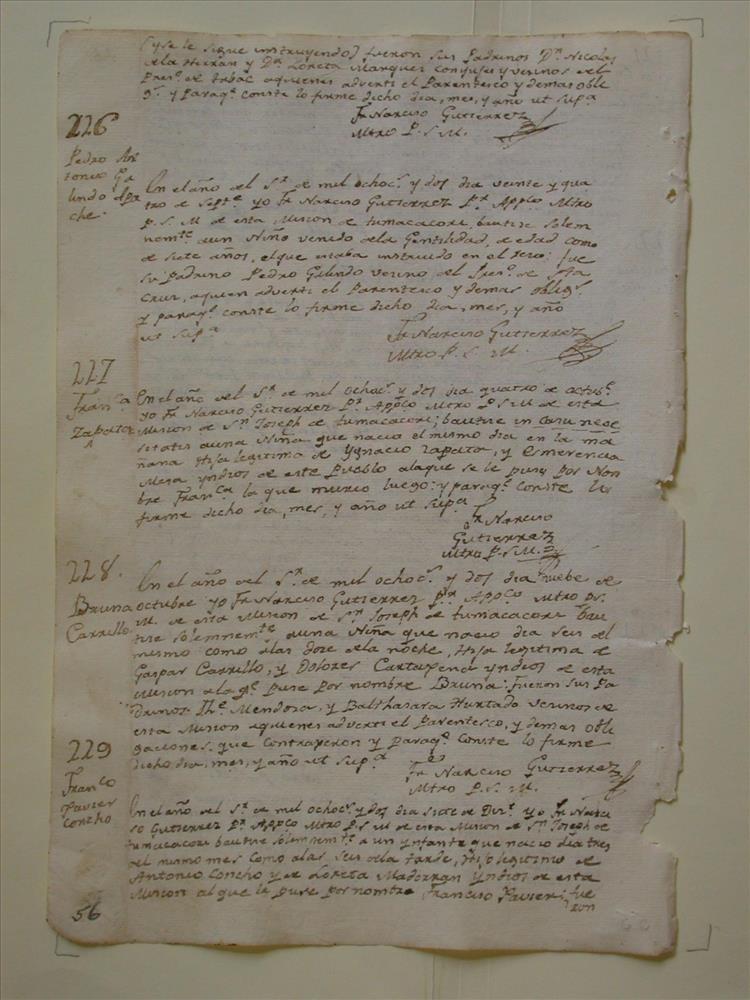 (y se le sigue instruyendo) fueron sus Padrinos Dn. Nicolas
de la Herran y Da. Loreta Marques conjuges y vecinos del
Presº. de tubac aquienes adverti el Parentesco y demas obli
gs. y paraqe. conste lo firme dicho dia, mes, y año ut supa
Fr. Narciso Gutierrez
Mtro P. S. M.
226
Pedro An
tonio Ga
lindo Apa
che.
En el año del Sr. de mil ochocs. y dos dia veinte y qua
tro de Septe. yo Fr. Narciso Gutierrez Pr. Appco. Mtro
P. S. M. de esta Mision de tumacacori, bautise solem
nemte. aun Niño venido dela Gentilidad, de edad como
de siete años, el que estaba instruido en el : fue
su Padrino Pedro Galindo vecino del Presº. de Sta
Cruz, aquien adverti el Parentesco y demas obligs.
y paraqe. conste lo firme dicho dia, mes, y año
ut supa
Fr. Narciso Gutierrez
Mtro P. S. M.
227
Franca
Zapata
En el año del Sr. de mil ochocs. y dos dia quatro de octubre.
yo Fr. Narciso Gutierrez Pr. Appco Mtro P. S. M. de esta
Mision de Sn. Joseph de tumacacori; bautise in casu nece
sitatis auna Niña que nacio el mismo dia en la ma
ñana Hija legitima de Ygnacio Zapata, y Esmerencia
Mesa yndios de este Pueblo ala que se le puso por Nom
bre Franca la que murio luego: y paraqe. conste lo
firme dicho dia, mes, y año ut supa
Fr. Narciso
Gutierrez
Mtro P. S. M.
228.
Bruna
Carrillo
En el año del Sr. de mil ochocs. y dos dia nuebe de
octubre yo Fr. Narciso Gutierrez Pr. Appco. Mtro Pr. S.
M. de esta Mision de Sn. Joseph de tumacacori bau
tise solemnemte. auna Niña que nacio dia seis del
mismo como alas doze de la noche, Hija legitima de
Gaspar Carrillo, y Dolores Cartaxena yndios de esta
Mision ala qe. puse por nombre Bruna: fueron sus Pa
drinos Mendosa, y Balthasara Hurtado vecinos de
esta Mision aquienes adverti el Parentesco, y demas obli
gaciones que contraxeron y paraqe. conste lo firme
dicho dia, mes, y año ut supa
Fr. Narciso Gutierrez
Mtro P. S. M.
229
Franco
Xavier
Concho
En el año del Sr. de mil ochocs. y dos dia siete de Dire. yo Fr. Narci
so Gutierrez Pr. Appco Mtro P. S. M. de esta Mision de Sn. Joseph de
tumacacori bautise solemnemte. a un ynfante que nacio dia tres
del mismo mes como alas seis dela tarde, Hijo legitimo de
Antonio Concho y de Loreta Maderran yndios de esta
Mision al que le puse por nombre Francisco Xavier; fue
ron
56